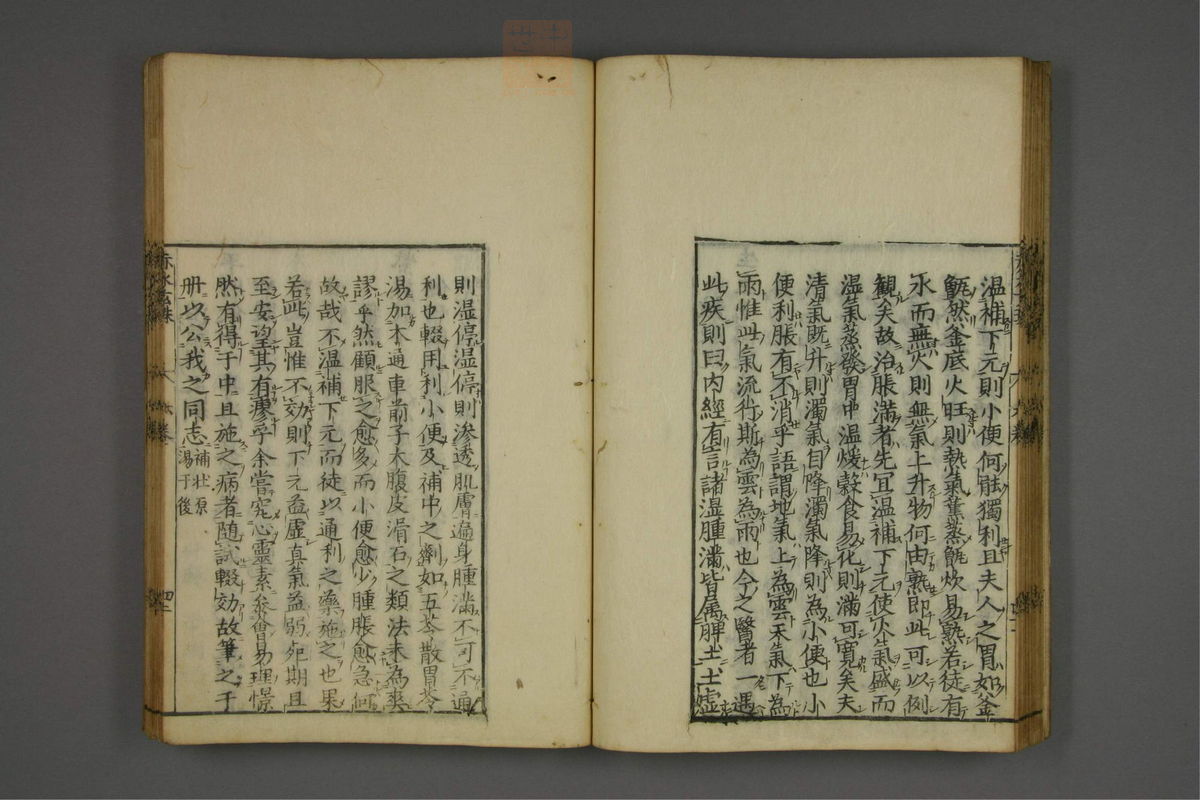 温補下元則小便何能獨利且夫人之胃如釜
甑然釜底火旺則熱氣薰蒸甑炊易熟若徒有
水而無火則無氣上升物何由熟即此可以例
観矣故治脹滿者先冝温補下元使火氣盛而
温氣蒸發胃中温煖穀食易化則滿可寛矣夫
清氣既升則濁氣自降濁氣降則為小便也小
便利脹有不消乎語謂地氣上為雲天氣下為
雨惟此氣流行斯為雲為雨也今之醫者一遇
此疾則曰内經有言諸湿腫滿皆属脾土土虚
則湿停湿停則滲透肌膚遍身腫滿不可不通
利也輟用利小便及補中之劑如五苓散胃苓
湯加木通車前子大腹皮滑石之類法未為爽
謬乎然顧服之愈多而小便愈少腫脹愈急何
故哉不温補下元而徒以通利之藥施之也果
若此豈惟不効則下元益虚真氣益弱死期且
至安望其有瘳乎余嘗究心靈素參會易理憬
然有得于中且施之病者随試輟効故筆之于
册以公我之同志
補状原
湯于後
赤水玄珠
六巻
四二